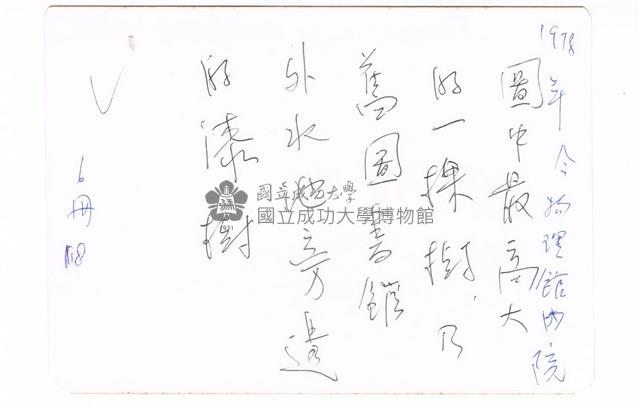 1978年今物理館內院
圖中最高大
的一棵樹,乃
舊圖書館
外水池旁邊
的漆樹
6冊
118
國立成功大學
國立成功大學博物館